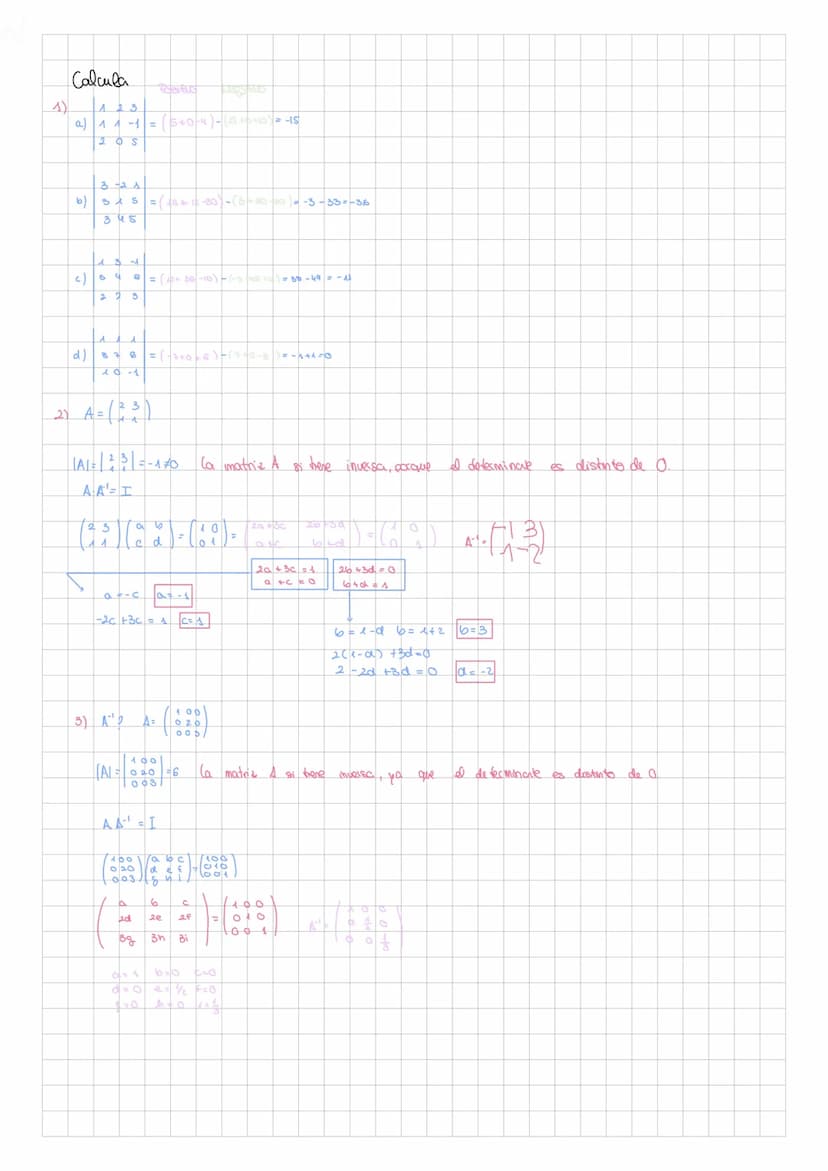 Calcula
1)
a) | 1 2 3 |
| 1 1 -1 | = (5+0-4)-( ) = -15
| 2 0 5 |
| 3 -2 1 |
b) | 5 1 5 | = ( )-( ) = -3-33=-36
| 3 4 5 |
| 1 3 -1 |
c) = ( )-( ) = -49 = -11
| 2 2 3 |
| 1 1 1 |
d) = (-7+0+8)-( ) = -1+1=0
| 1 0 -1 |
2) A = ( 2 3 / 1 1 )
|A|= | 2 3 / 1 1 | = -1≠0 La matriz A si tiene inversa, porque el determinante es distinto de 0.
A·A⁻¹= I
( 2 3 / 1 1 )( a b / c d ) = ( 1 0 / 0 1 ) = ( 2a+3c 2b+3d / a+c b+d ) = ( 1 0 / 0 1 ) A⁻¹= ( -1 3 / 1 -2 )
2a+3c=1 2b+3d=0
a+c=0 b+d=1
a=-c a=-1
-2c+3c=1 c=1
b=1-d b=1+2 b=3
2(1-d)+3d=0
2-2d+3d=0 d=-2
3) A⁻¹? A= ( 1 0 0 / 0 2 0 / 0 0 3 )
|A|= | 1 0 0 / 0 2 0 / 0 0 3 | =6 La matriz A si tiene inversa, ya que el determinante es distinto de 0
A A⁻¹ = I
( 1 0 0 / 0 2 0 / 0 0 3 )( a b c / d e f / g h i ) = ( 1 0 0 / 0 1 0 / 0 0 1 )
( a b c / 2d 2e 2f / 3g 3h 3i ) = ( 1 0 0 / 0 1 0 / 0 0 1 ) A⁻¹= ( 1 0 0 / 0 1/2 0 / 0 0 1/3 )
a=1 b=0 c=0
d=0 e=1/2 f=0
g=0 h=0 i=1/3